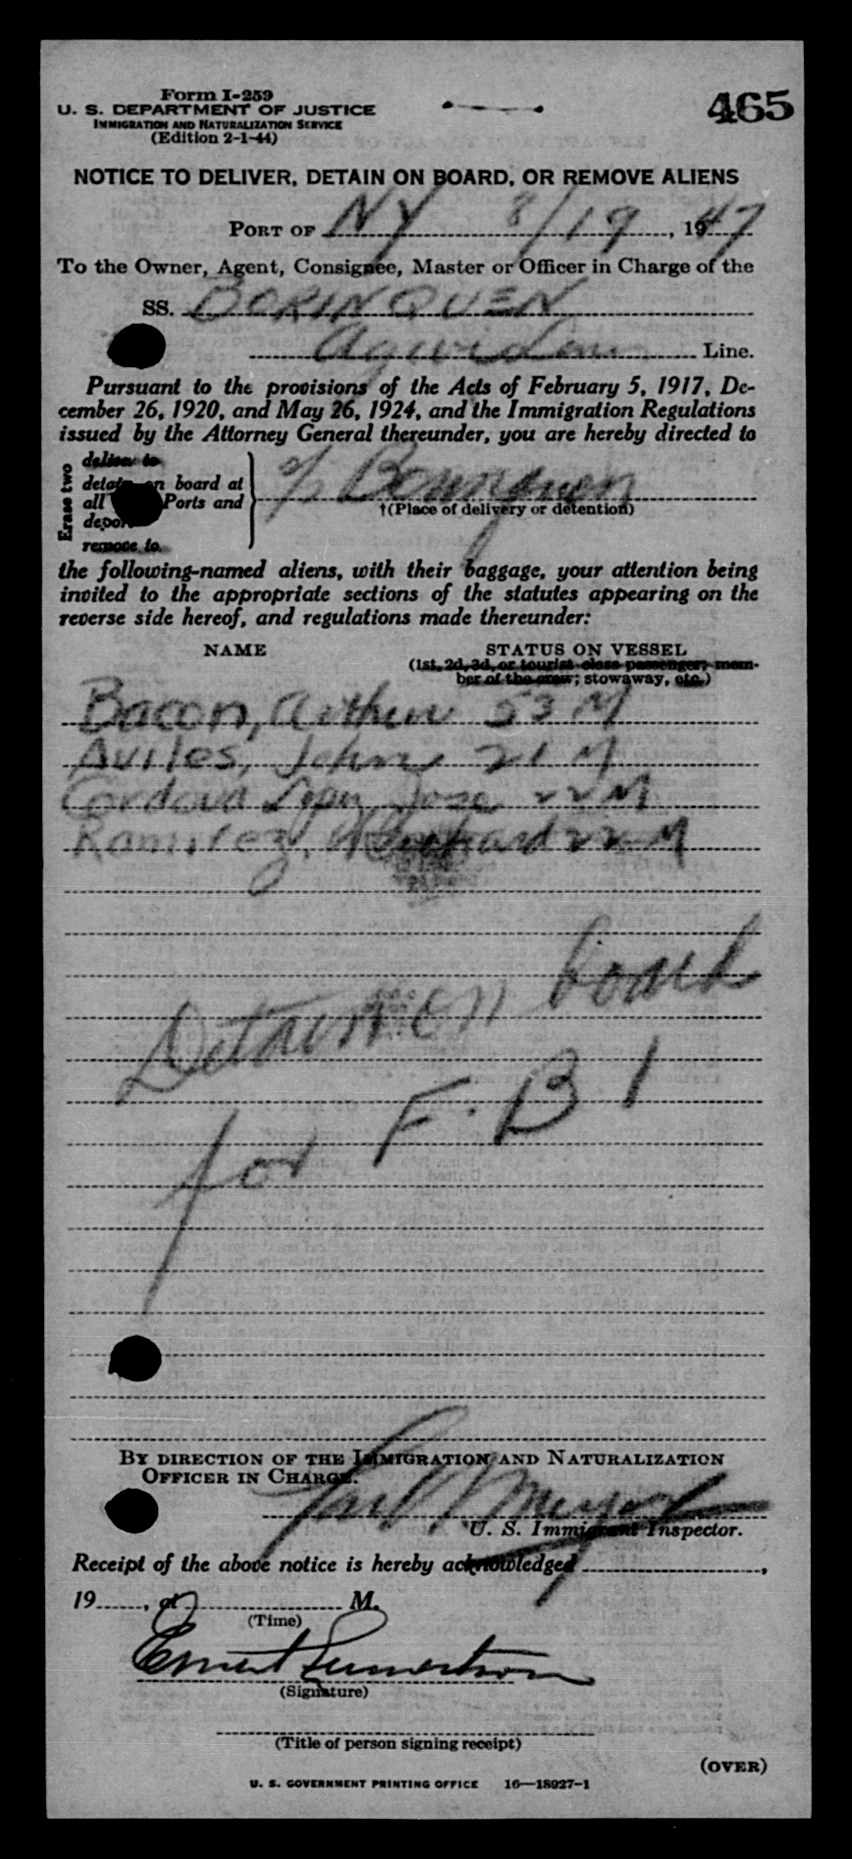 Form I-259
465
U. S. DEPARTMENT OF JUSTICE
IMMIGRATION AND NATURALIZATION SERVICE
(Edition 2-1-44)
NOTICE TO DELIVER, DETAIN ON BOARD, OR REMOVE ALIENS
PORT OF NY 8/19, 1947
To the Owner, Agent, Consignee, Master or Officer in Charge of the
SS. BORINQUEN
Agwi Line.
Pursuant to the provisions of the Acts of February 5, 1917, De-
cember 26, 1920, and May 26, 1924, and the Immigration Regulations
issued by the Attorney General thereunder, you are hereby directed to
Erase two
deliver to
detain on board at
all Ports and
deport
remove to
†(Place of delivery or detention)
the following-named aliens, with their baggage, your attention being
invited to the appropriate sections of the statutes appearing on the
reverse side hereof, and regulations made thereunder:
NAME STATUS ON VESSEL
(1st, 2d, 3d, or tourist class passenger; mem-
ber of the crew; stowaway, etc.)
Bacon, Arthur 53 M
Aviles, John 21 M
Cordova Jose 22 M
Ramirez, Richard 22 M
Detain on board
for F.B I
BY DIRECTION OF THE IMMIGRATION AND NATURALIZATION
OFFICER IN CHARGE.
U. S. Immigrant Inspector.
Receipt of the above notice is hereby acknowledged,
19, at M.
(Time)
Ernest
(Signature)
(Title of person signing receipt)
(OVER)
U. S. GOVERNMENT PRINTING OFFICE 16—18927-1